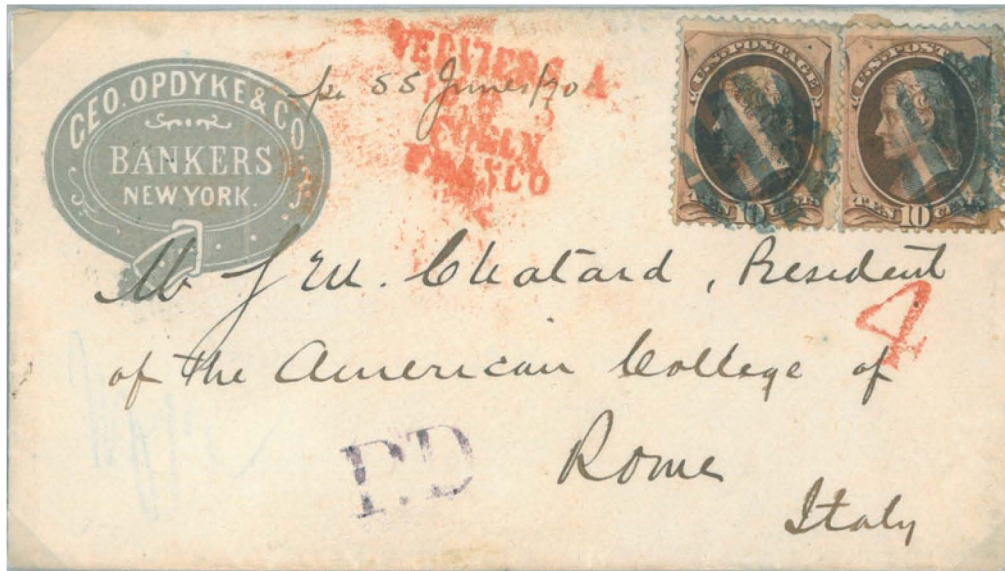 GEO. OPDYKE & CO
BANKERS
NEW YORK.
pr SS June 1/70
FRANCO
U.S. POSTAGE
TEN 10 CENTS
U.S. POSTAGE
TEN 10 CENTS
Chatard, President
4
of the American College of
P.D
Rome
Italy